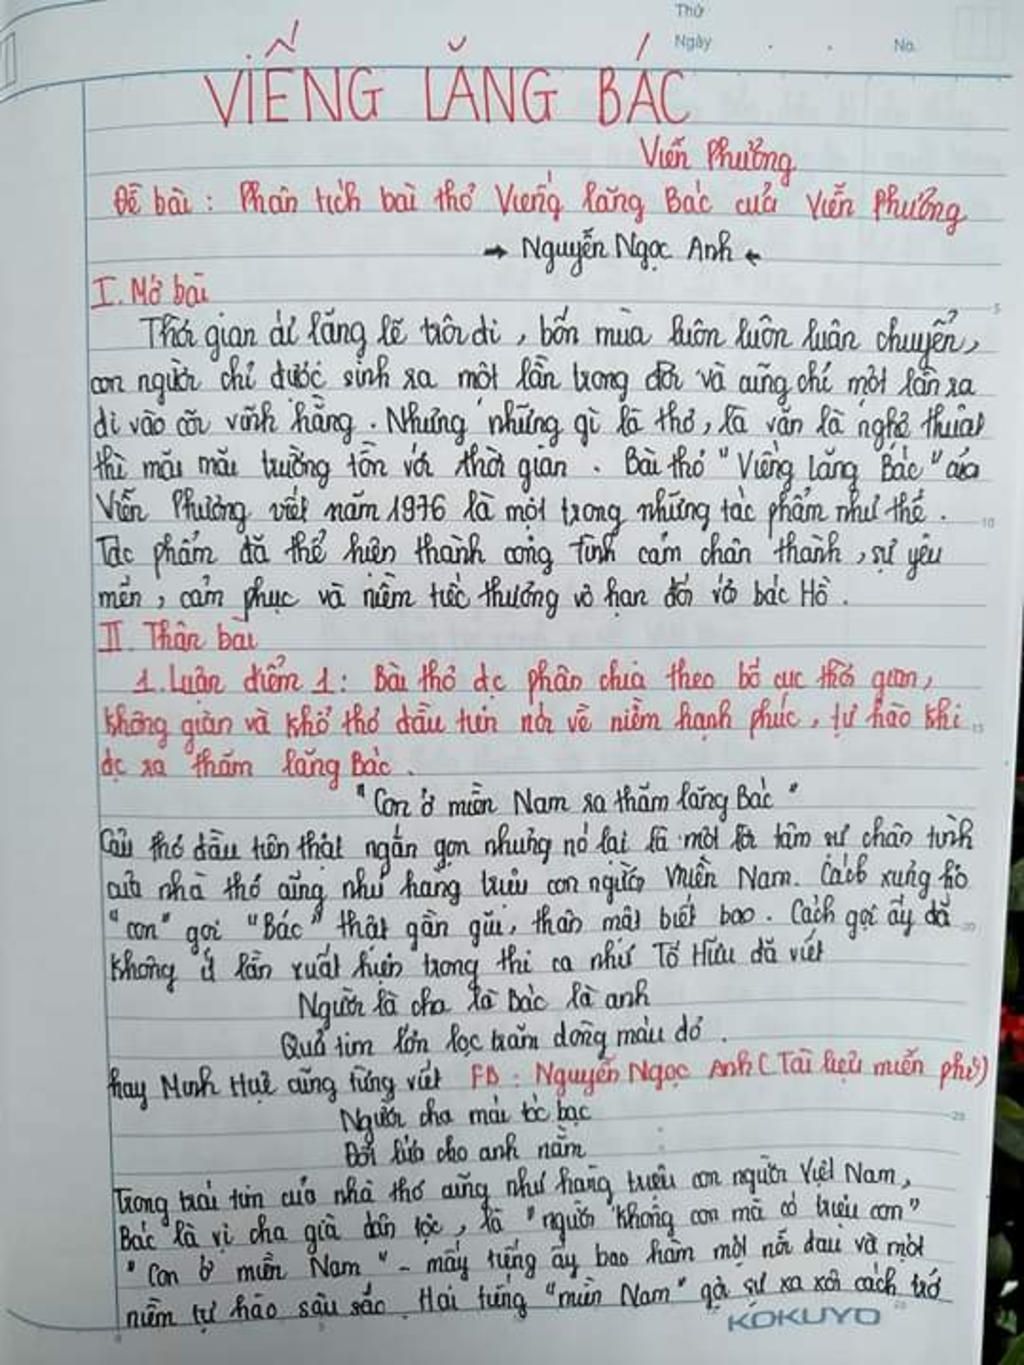 Thứ
Ngày . . No.
VIẾNG LĂNG BÁC
Viễn Phương
Đề bài : Phân tích bài thơ Viếng lăng Bác của Viễn Phương
→ Nguyễn Ngọc Anh ←
I. Mở bài
Thời gian cứ lăng lẽ trôi đi , bốn mùa luôn luôn luân chuyển,
con người chỉ được sinh ra một lần trong đời và cũng chỉ một lần ra
đi vào cõi vĩnh hằng . Nhưng những gì là thơ, là văn là nghệ thuật
thì mãi mãi trường tồn với thời gian . Bài thơ "Viếng lăng Bác" của
Viễn Phương viết năm 1976 là một trong những tác phẩm như thế .
Tác phẩm đã thể hiện thành công tình cảm chân thành , sự yêu
mến , cảm phục và niềm tiếc thương vô hạn đối với bác Hồ .
II. Thân bài
1. Luận điểm 1 : Bài thơ đc phân chia theo bố cục thời gian,
không gian và khổ thơ đầu tiên nói về niềm hạnh phúc, tự hào khi
đc ra thăm lăng Bác .
"Con ở miền Nam ra thăm lăng Bác"
Câu thơ đầu tiên thật ngắn gọn nhưng nó lại là một lời tâm sự chân tình
của nhà thơ cũng như hàng triệu con người Miền Nam. Cách xưng hô
"con" gọi "Bác" thật gần gũi, thân mật biết bao . Cách gọi ấy đã
không ít lần xuất hiện trong thi ca như Tố Hữu đã viết
Người là cha là Bác là anh
Quả tim lớn lọc trăm dòng máu đỏ .
hay Minh Huệ cũng từng viết FB : Nguyễn Ngọc Anh ( Tài liệu miễn phí)
Người cha mái tóc bạc
Đốt lửa cho anh nằm
Trong trái tim của nhà thơ cũng như hàng triệu con người Việt Nam,
Bác là vị cha già dân tộc , là "người không con mà có triệu con"
"Con ở miền Nam" - mấy tiếng ấy bao hàm một nỗi đau và một
niềm tự hào sâu sắc. Hai tiếng "miền Nam" gợi sự xa xôi cách trở
KOKUYO